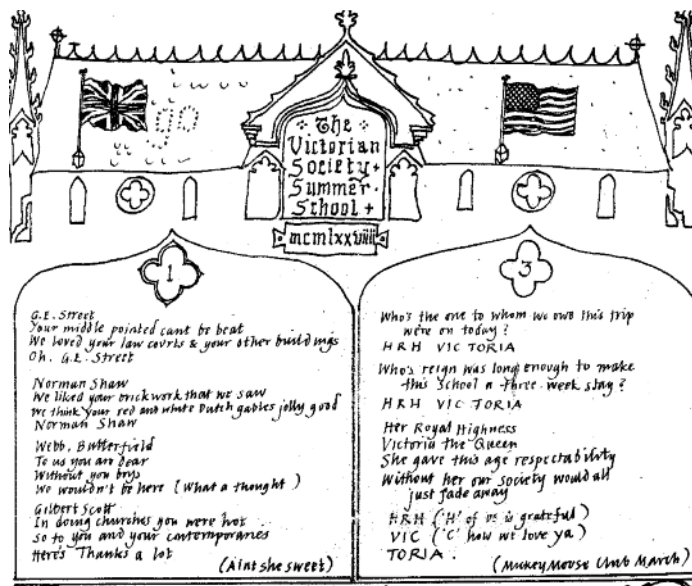 The
Victorian
Society +
Summer
School +
mcmlxxviiii
1
G.E. Street
Your middle pointed cant be beat
We loved your law courts & your other buildings
Oh. G.E. Street
Norman Shaw
We liked your brickwork that we saw
We think your red and white Dutch gables jolly good
Norman Shaw
Webb, Butterfield
To us you are dear
Without you boys
We wouldn't be here (What a thought)
Gilbert Scott
In doing churches you were hot
So to you and your contemporaries
Here's Thanks a lot
(Aint she sweet)
3
Who's the one to whom we owe this trip
we're on today?
HRH VIC TORIA
Who's reign was long enough to make
this school a three-week stay?
HRH VIC TORIA
Her Royal Highness
Victoria the Queen
She gave this age respectability
Without her our society would all
just fade away
HRH ('H' of us is grateful)
VIC ('C' how we love ya)
TORIA.
(Mickey Mouse Club March)